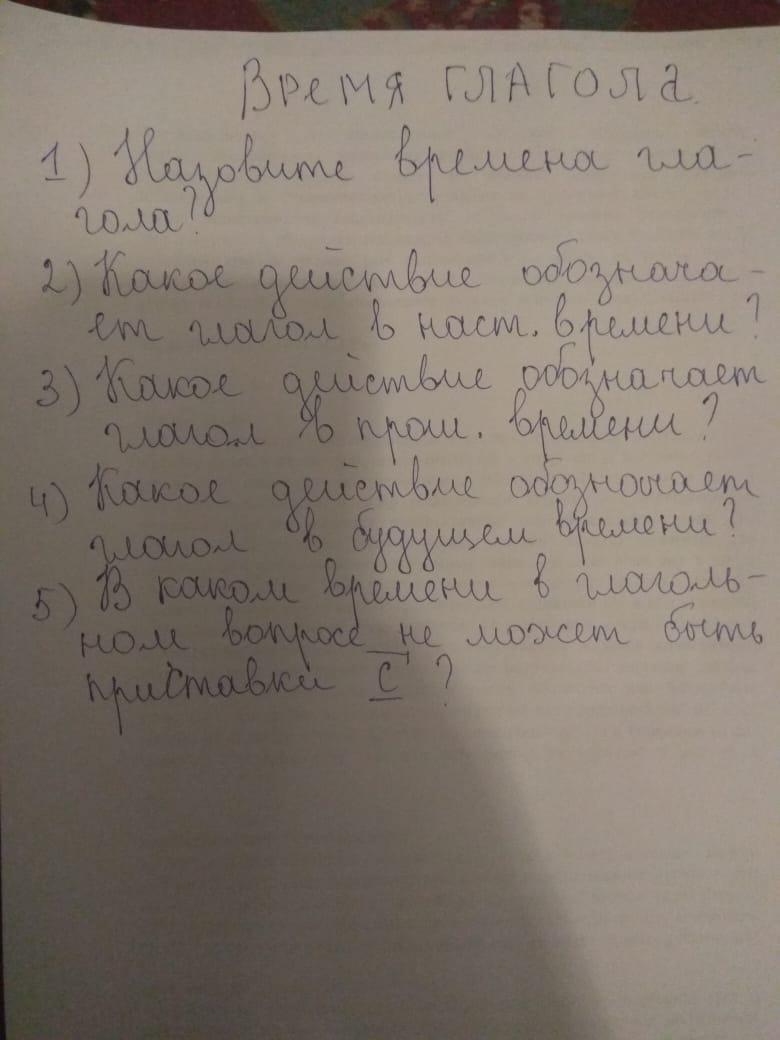 Время глагола
1) Назовите времена гла-
гола?
2) Какое действие обознача-
ет глагол в наст. времени?
3) Какое действие обозначает
глагол в прош. времени?
4) Какое действие обозначает
глагол в будущем времени?
5) В каком времени в глаголь-
ном вопросе не может быть
приставки С ?